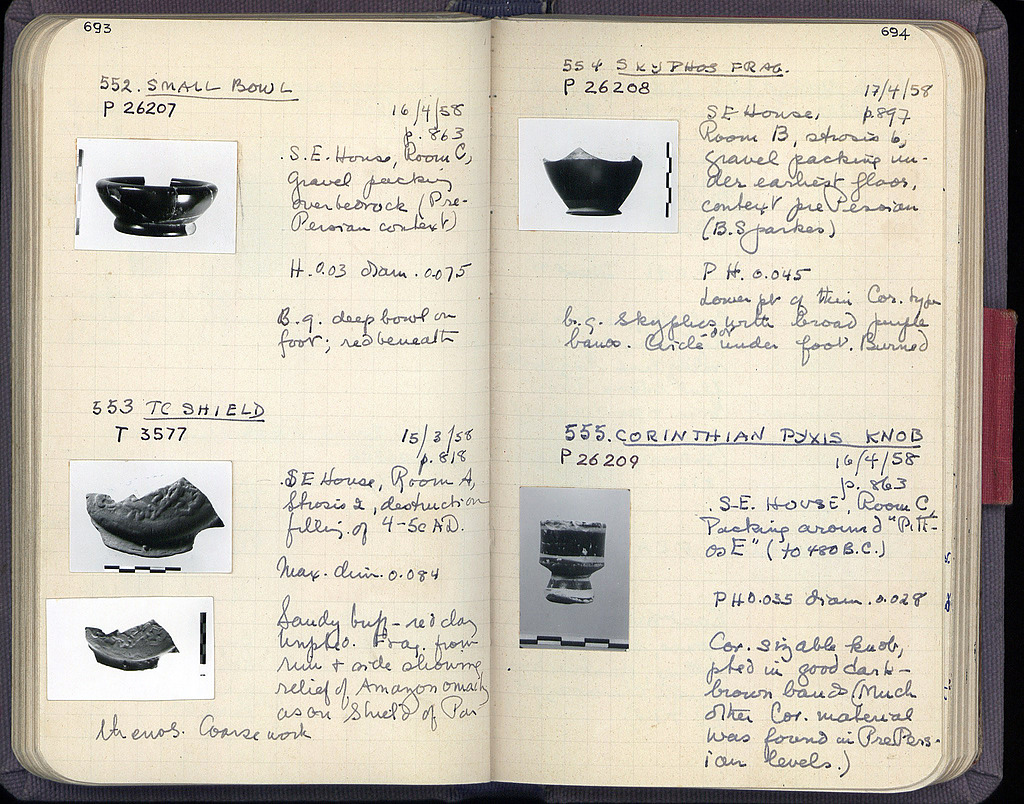 693
552. SMALL BOWL
P 26207
16/4/58
p. 863
S.E. House, Room C,
gravel packing
over bedrock (Pre-
Persian context)
H. 0.03 diam. 0.075
B.g. deep bowl on
foot; red beneath
553 TC SHIELD
T 3577
15/3/58
p. 818
SE House, Room A,
Strosis 2, destruction
filling of 4-5c AD.
Max. dim. 0.084
Sandy buff-red clay
Unptd. Frag. from
rim + side showing
relief of Amazonomachy
as on Shield of Par
thenos. Coarse work
694
554 SKYPHOS FRAG.
P 26208
17/4/58
SE House, p. 897
Room B, strosis 6,
gravel packing un-
der earliest floor,
context pre Persian
(B. Sparkes)
P H. 0.045
Lower pt of thin Cor. type
b.g. skyphos with broad purple
band. Circle + dot under foot. Burned
555. CORINTHIAN PYXIS KNOB
P 26209
16/4/58
p. 863
S.E. HOUSE, Room C,
Packing around "Pith-
os E" (to 480 B.C.)
P H 0.035 diam. 0.028
Cor. sizable knob,
ptd in good dark-
brown bands (Much
other Cor. material
was found in PrePers-
ian levels.)